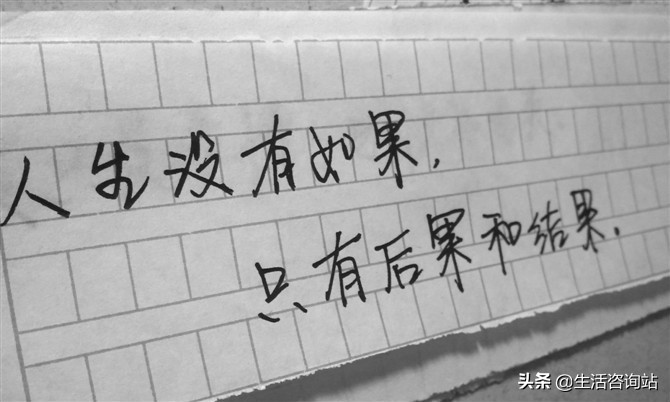 人生没有如果.
只有后果和结果.
头条 @生活咨询站